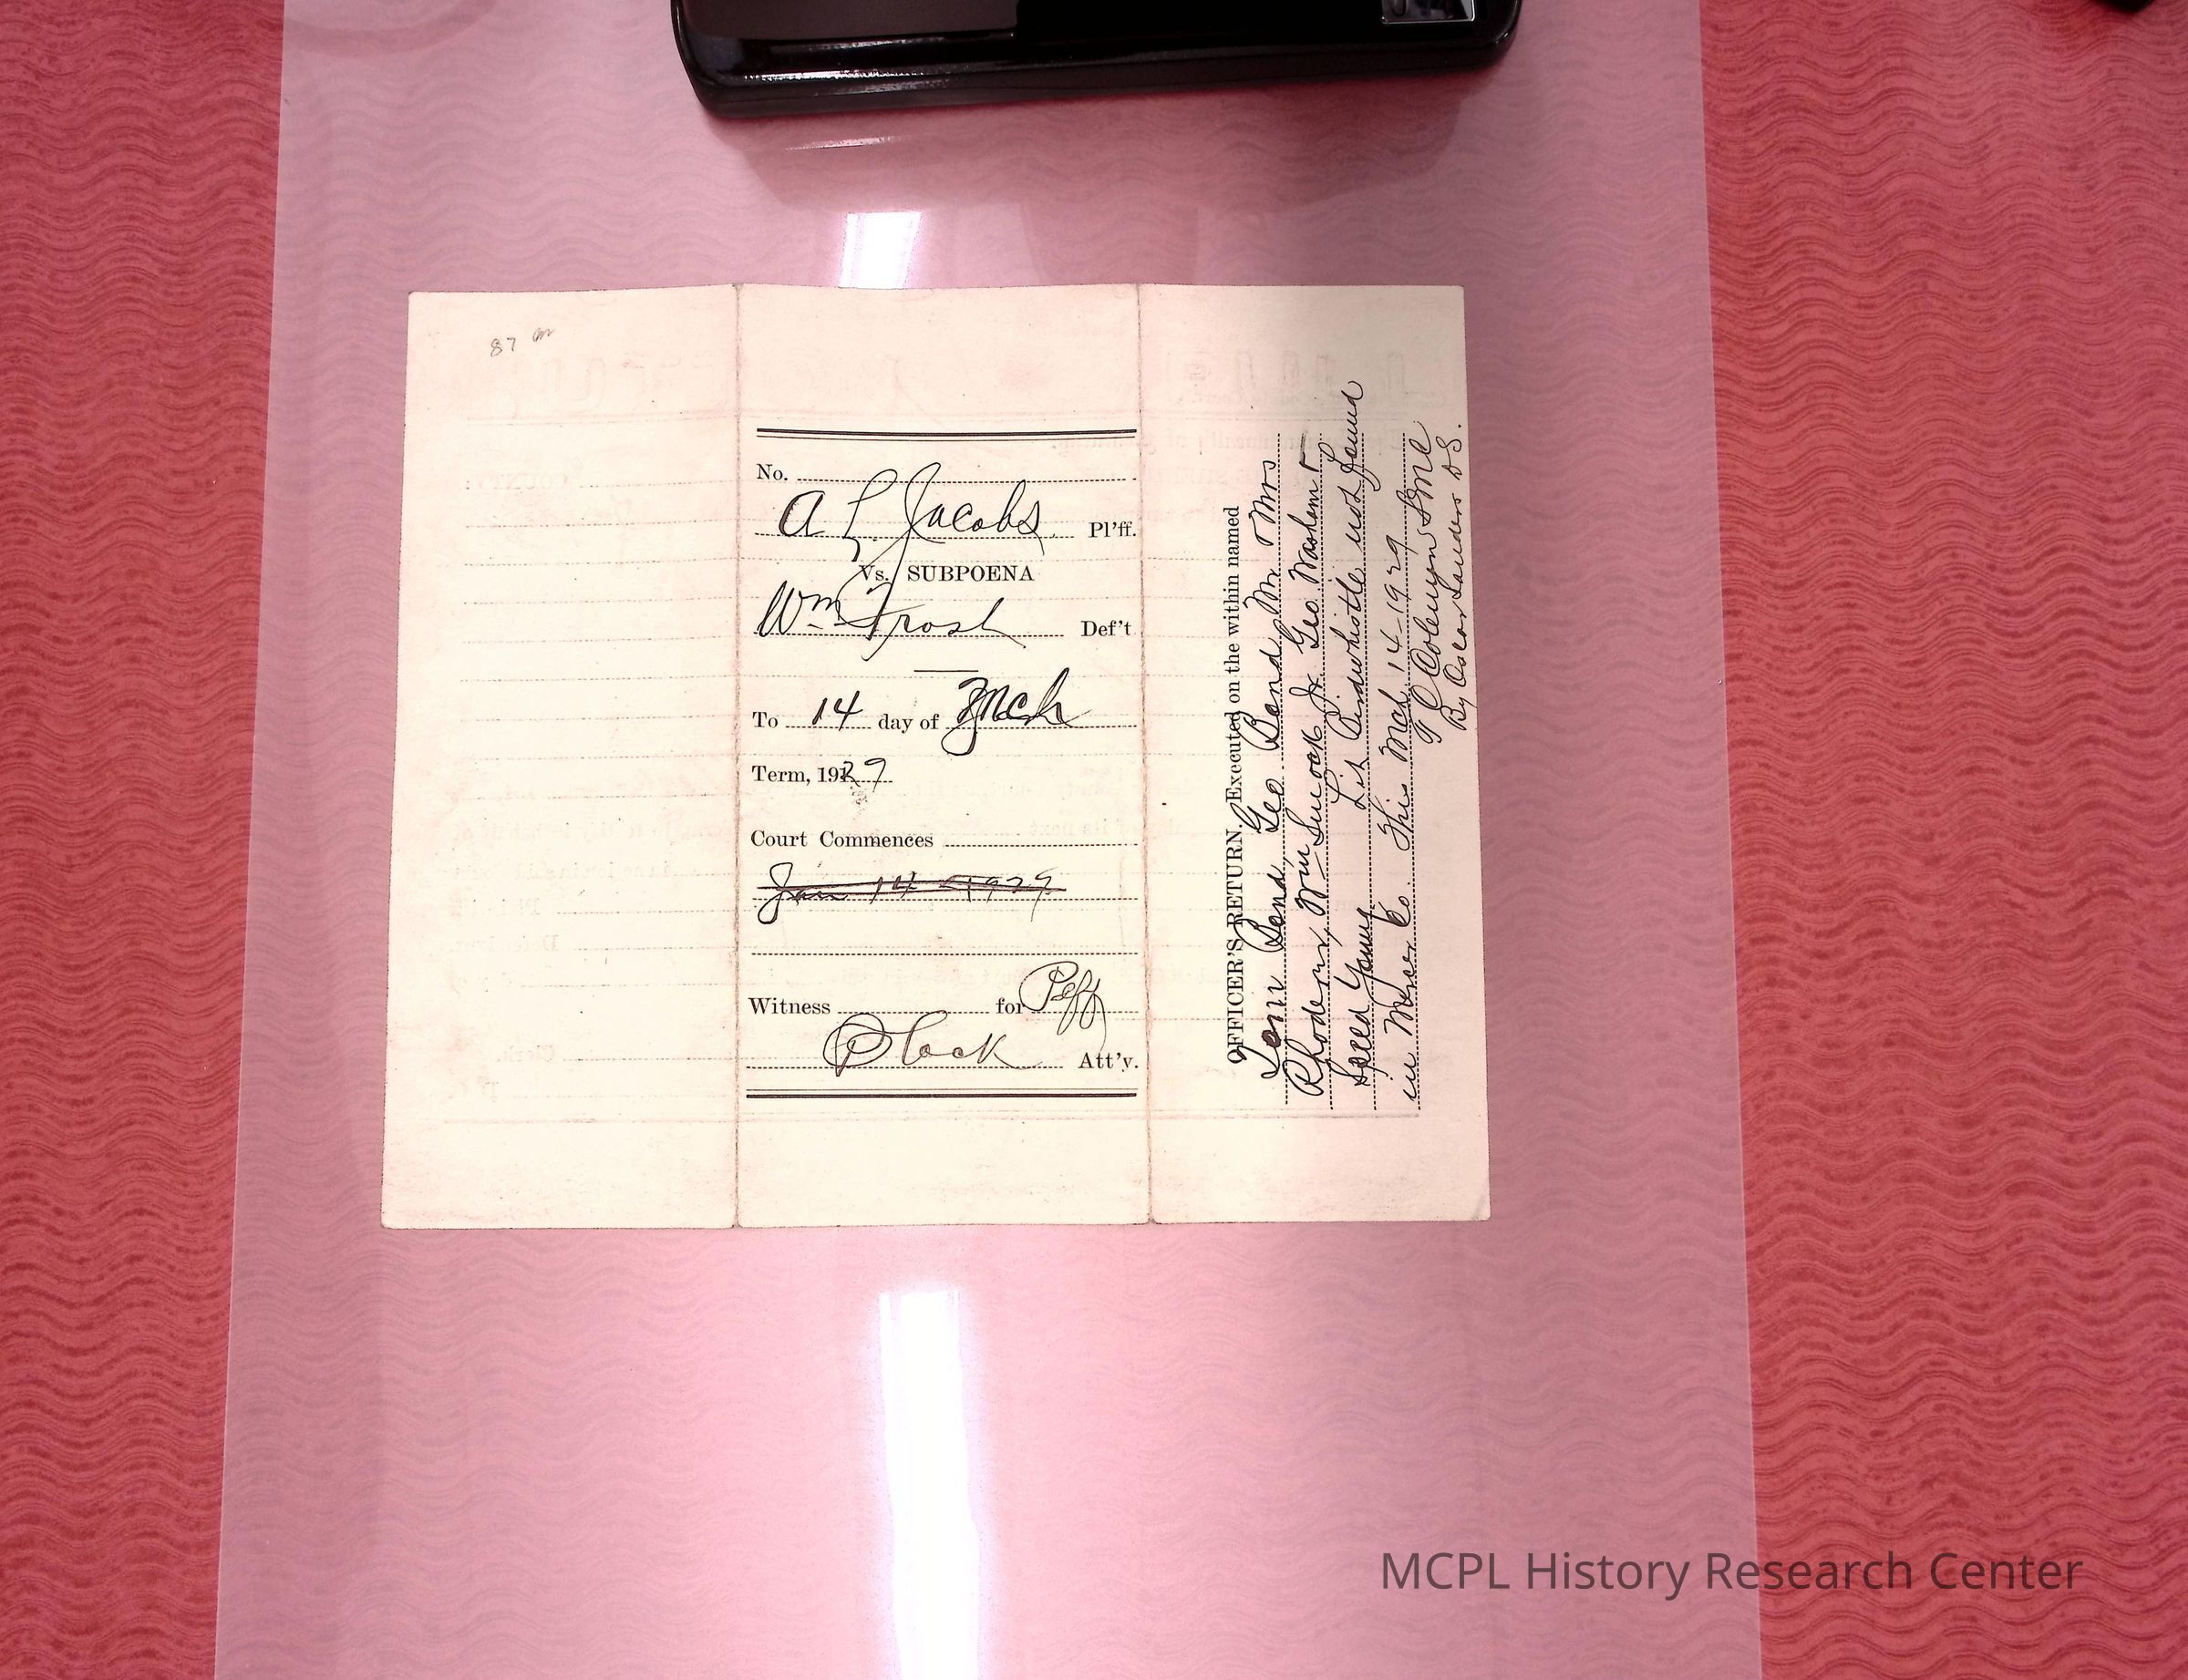 87
No.
A L Jacobs Pl'ff.
Vs. SUBPOENA
Wm Frost Def't
To 14 day of Mch
Term, 1929
Court Commences
Jan 14 1929
Witness for Peff
Black Att'y.
OFFICER'S RETURN. Executed on the within named
Tom Bond, Geo Bond, Mr & Mrs
Rhodern, Wm Sucock Jr Geo. Washam &
Speed Young. Lit Birdwhistle not found
in Mercer Co. This Mch, 14-1929
T C Coleman SMC
By Oscar Sanders DS.
MCPL History Research Center